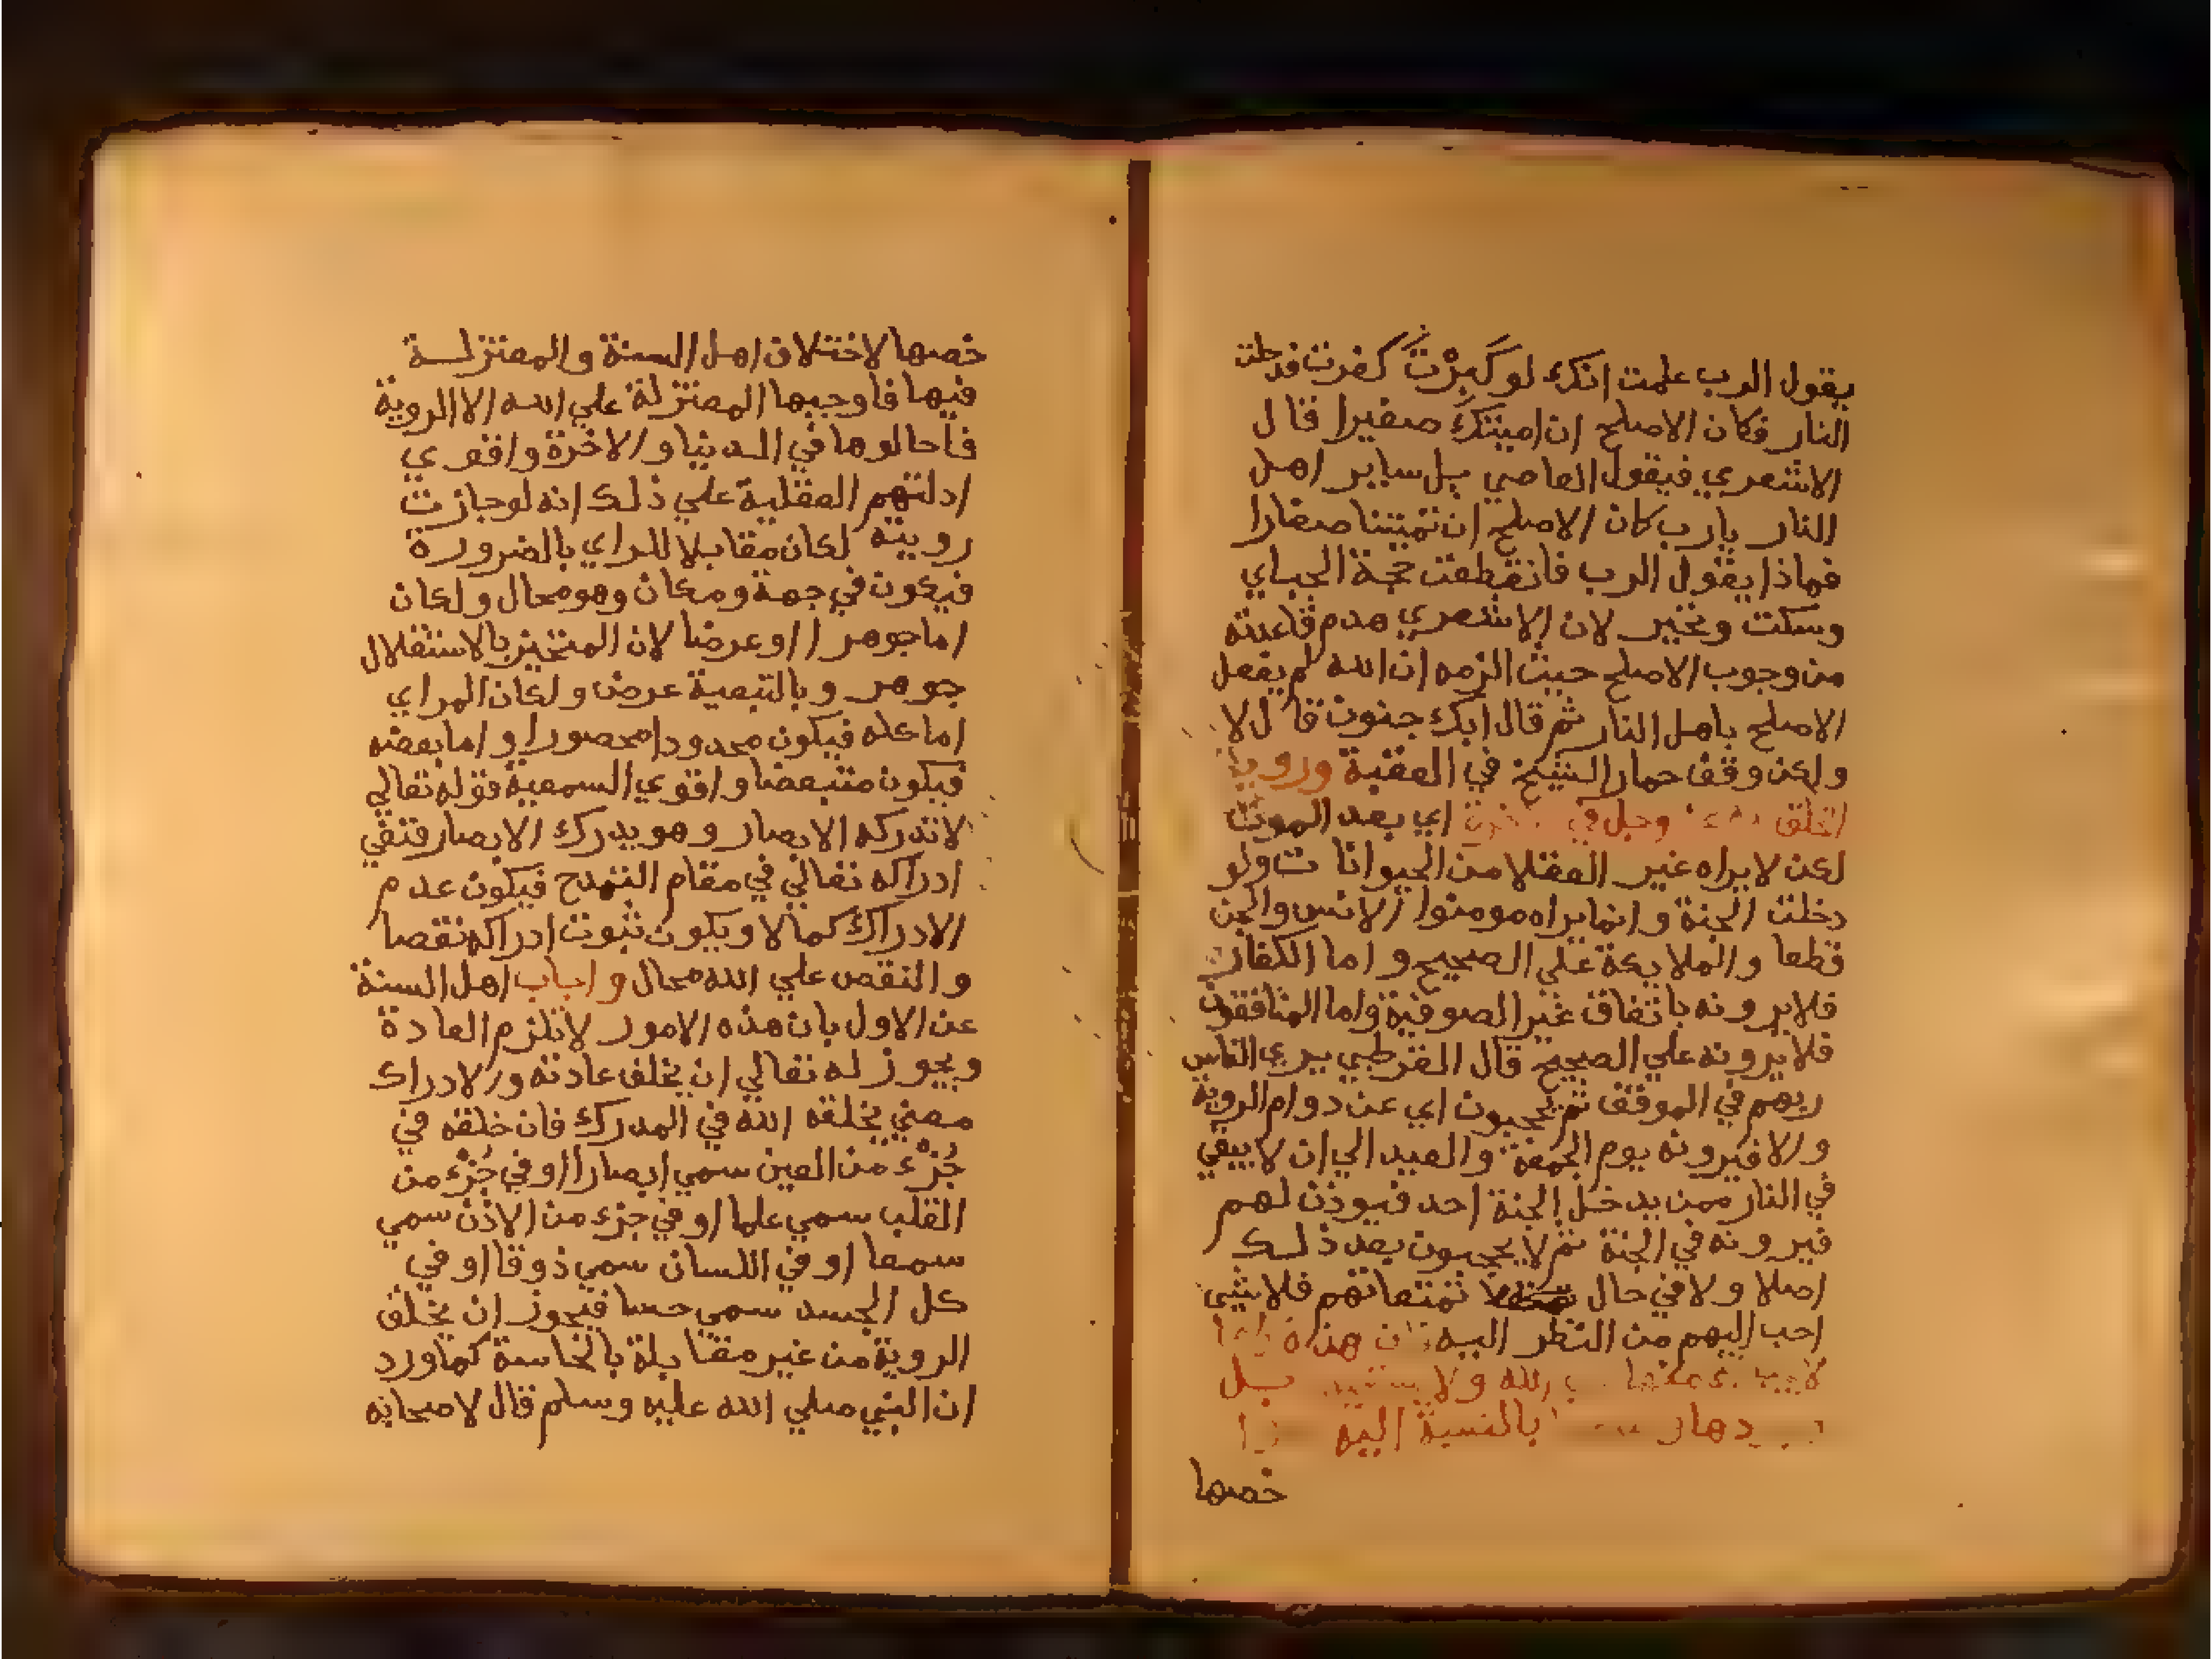 يقول الرب علمت انك لو كَبِرْتَ كفرت فدخلت
النار فكان الاصلح ان اميتك صغيرا قال
الاشعري فيقول العاصي بل ساير اهل
النار يارب كان الاصلح ان تميتنا صغارا
فماذا يقول الرب فانقطعت حجة الجباي
وسكت وتحير لان الاشعري هدم قاعدته
من وجوب الاصلح حيث الزمه ان الله لم يفعل
الاصلح باهل النار ثم قال ابك جنون قال لا
ولكن وقف حمار الشيخ في العقبة ورويا
الخلق وجل في اي بعد الموت
لكن لا يراه غير العقلا من الحيوانات ولو
دخلت الجنة وانما يراه مومنوا الانس والجن
قطعا والملايكة علي الصحيح واما الكفار
فلا يرونه باتفاق غير الصوفية واما المنافقون
فلا يرونه علي الصحيح قال القرطبي يري الناس
ربهم في الموقف ثم يحجبون اي عن دوام الروية
والا فيرونه يوم الجمعة والعيد الي ان لا يبقي
في النار ممن يدخل الجنة احد فيوذن لهم
فيرونه في الجنة ثم لا يحجبون بعد ذلك
اصلا ولا في حال تمتعاتهم فلا شيى
احب اليهم من النظر اليه هذه
الله ولا بل
بالنسبة اليه
خصها
خصها لاختلاف اهل السنة والمعتزلة
فيها فاوجبها المعتزلة علي الله الا الروية
فاحالوها في الدنيا والاخرة واقوي
ادلتهم العقلية علي ذلك انه لو جازت
رويته لكان مقابلا للراي بالضرورة
فيكون في جهة ومكان وهو محال ولكان
اما جوهرا او عرضا لان المتحيز بالاستقلال
جوهر وبالتبعية عرض ولكان المراي
اما كله فيكون محدودا محصورا واما بعضه
فيكون متبعضا واقوي السمعية قوله تعالي
لا تدركه الابصار وهو يدرك الابصار فنفي
ادراكه تعالي في مقام التمدح فيكون عدم
الادراك كمالا ويكون ثبوت ادراكه نقصا
والنقص علي الله محال واجاب اهل السنة
عن الاول بان هذه الامور لا تلزم العادة
ويجوز له تعالي ان يخلف عادته والادراك
معني يخلقه الله في المدرك فان خلقه في
جُزْء من العين سمي ابصارا او في جُزْء من
القلب سمي علما او في جزء من الاذن سمي
سمعا او في اللسان سمي ذوقا او في
كل الجسد سمي حسا فيجوز ان يخلق
الروية من غير مقابلة بالحاسة كما ورد
ان النبي صلي الله عليه وسلم قال لاصحابه